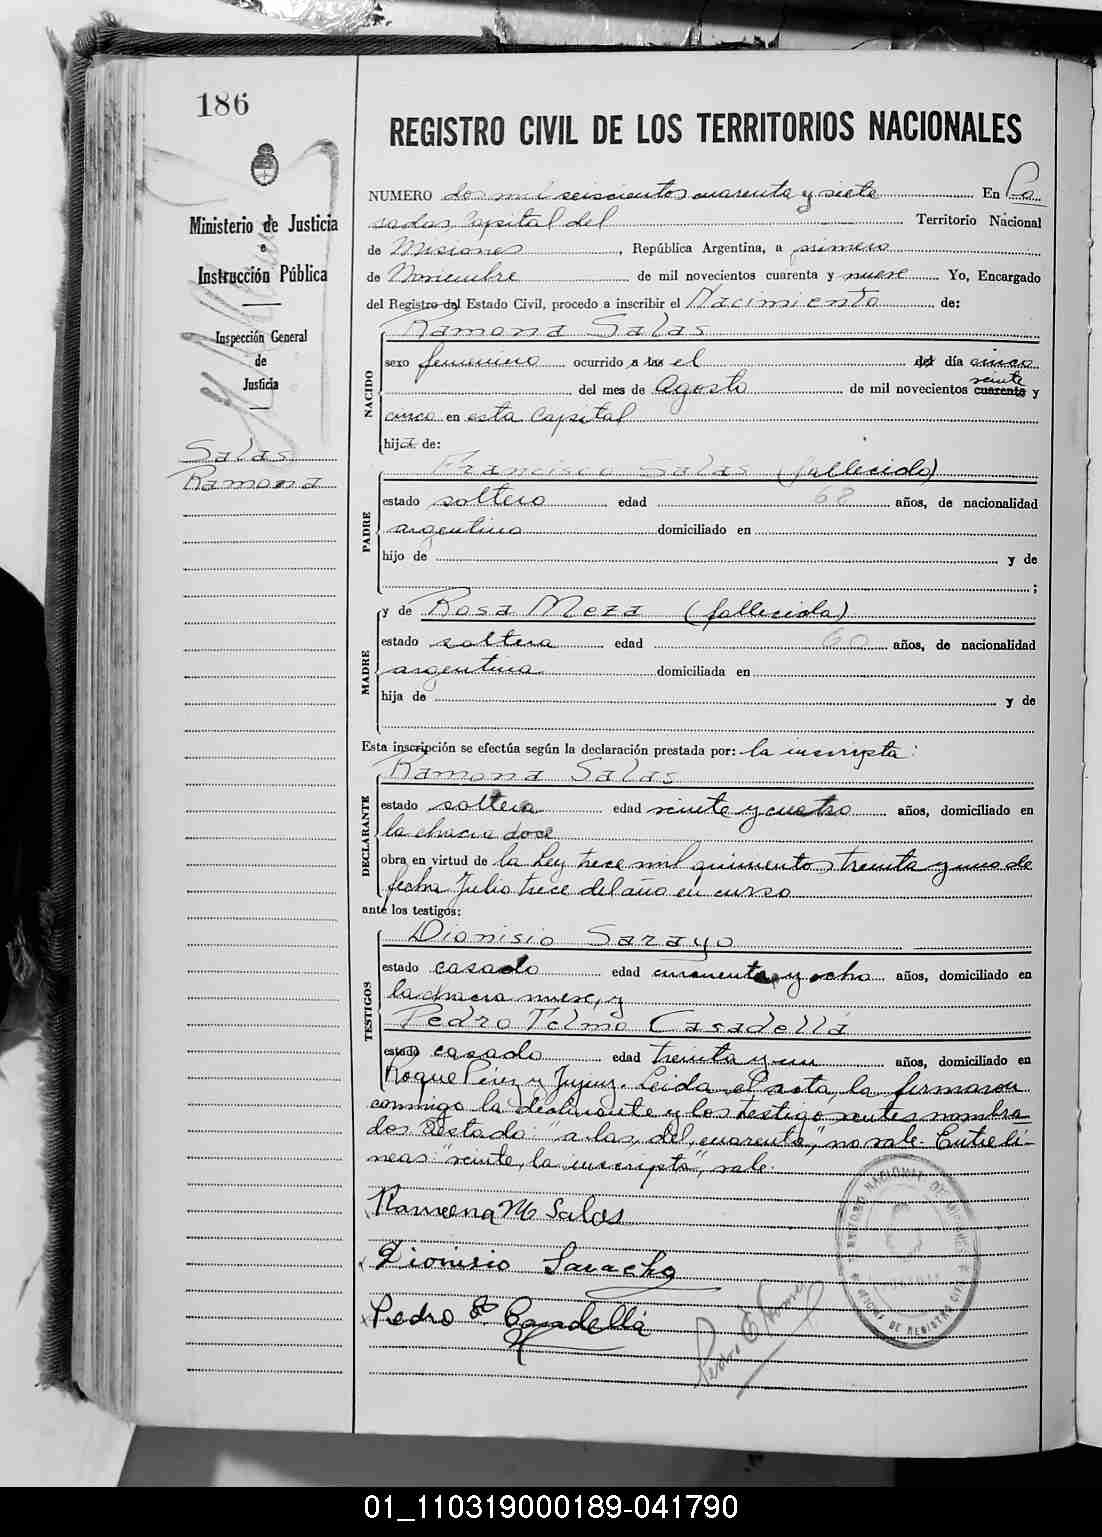 186
Ministerio de Justicia
e
Instrucción Pública
Inspección General
de
Justicia
Salas
Ramona
REGISTRO CIVIL DE LOS TERRITORIOS NACIONALES
NUMERO dos mil seiscientos cuarenta y siete En Po
sadas, Capital del Territorio Nacional
de Misiones, República Argentina, a primero
de Noviembre de mil novecientos cuarenta y nueve Yo, Encargado
del Registro del Estado Civil, procedo a inscribir el Nacimiento de:
NACIDO
Ramona Salas
sexo femenino ocurrido a las el del día cinco
del mes de Agosto de mil novecientos cuarenta veinte y
cinco en esta Capital
hija de:
PADRE
Francisco Salas (fallecido)
estado soltero edad 68 años, de nacionalidad
argentino domiciliado en
hijo de y de
;
MADRE
y de Rosa Meza (fallecida)
estado soltera edad 60 años, de nacionalidad
argentina domiciliada en
hija de y de
Esta inscripción se efectúa según la declaración prestada por: la inscripta:
DECLARANTE
Ramona Salas
estado soltera edad veinte y cuatro años, domiciliado en
la chacra doce
obra en virtud de la Ley trece mil quinientos treinta y uno de
fecha Julio trece del año en curso
ante los testigos:
TESTIGOS
Dionisio Sarayo
estado casado edad cincuenta y ocho años, domiciliado en
la chacra nueve, y
Pedro Telmo Casadellá
estado casado edad treinta y un años, domiciliado en
Roque Pérez y Jujuy. Leida el acta, la firmaron
conmigo la declarante y los testigos antes nombra
dos Testado: "a las, del, cuarenta", no vale. Entre lí-
neas: "veinte, la inscripta", vale.
Ramona M Salas
Dionisio Saracho
Pedro T. Casadellá
Pedro E
TERRITORIO NACIONAL DE MISIONES
OFICINA DE REGISTRO CIVIL
01_110319000189-041790